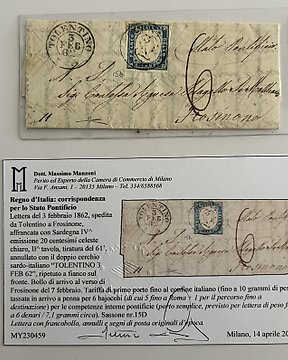 TOLENTINO
3
FEB
62
15b
Stato Pontificio
6
Frosinone
M
Dott. Massimo Manzoni
Perito ed Esperto della Camera di Commercio di Milano
Via F. Anzani, 1 – 20135 Milano - Tel. 334/6588368
Regno d'Italia: corrispondenza
per lo Stato Pontificio
Lettera del 3 febbraio 1862, spedita
da Tolentino a Frosinone,
affrancata con Sardegna IVª
emissione 20 centesimi celeste
chiaro, IIª tavola, tiratura del 61',
annullato con il doppio cerchio
sardo-italiano "TOLENTINO 3
FEB 62", ripetuto a fianco sul
fronte. Bollo di arrivo al verso di
Frosinone del 7 febbraio. Tariffa di primo porto fino al confine italiano (fino a 10 grammi di peso
tassata in arrivo a penna per 6 bajocchi (di cui 5 fino a Roma + 1 per il percorso fino a
destinazione) per le competenze interne pontificie (porto semplice, previsto per lettera di peso fino
a 6 denari / 7,1 grammi circa). Sassone nr.15D
Lettera con francobollo, annulli e segni di posta originali d'epoca.
MY230459
Milano, 14 aprile